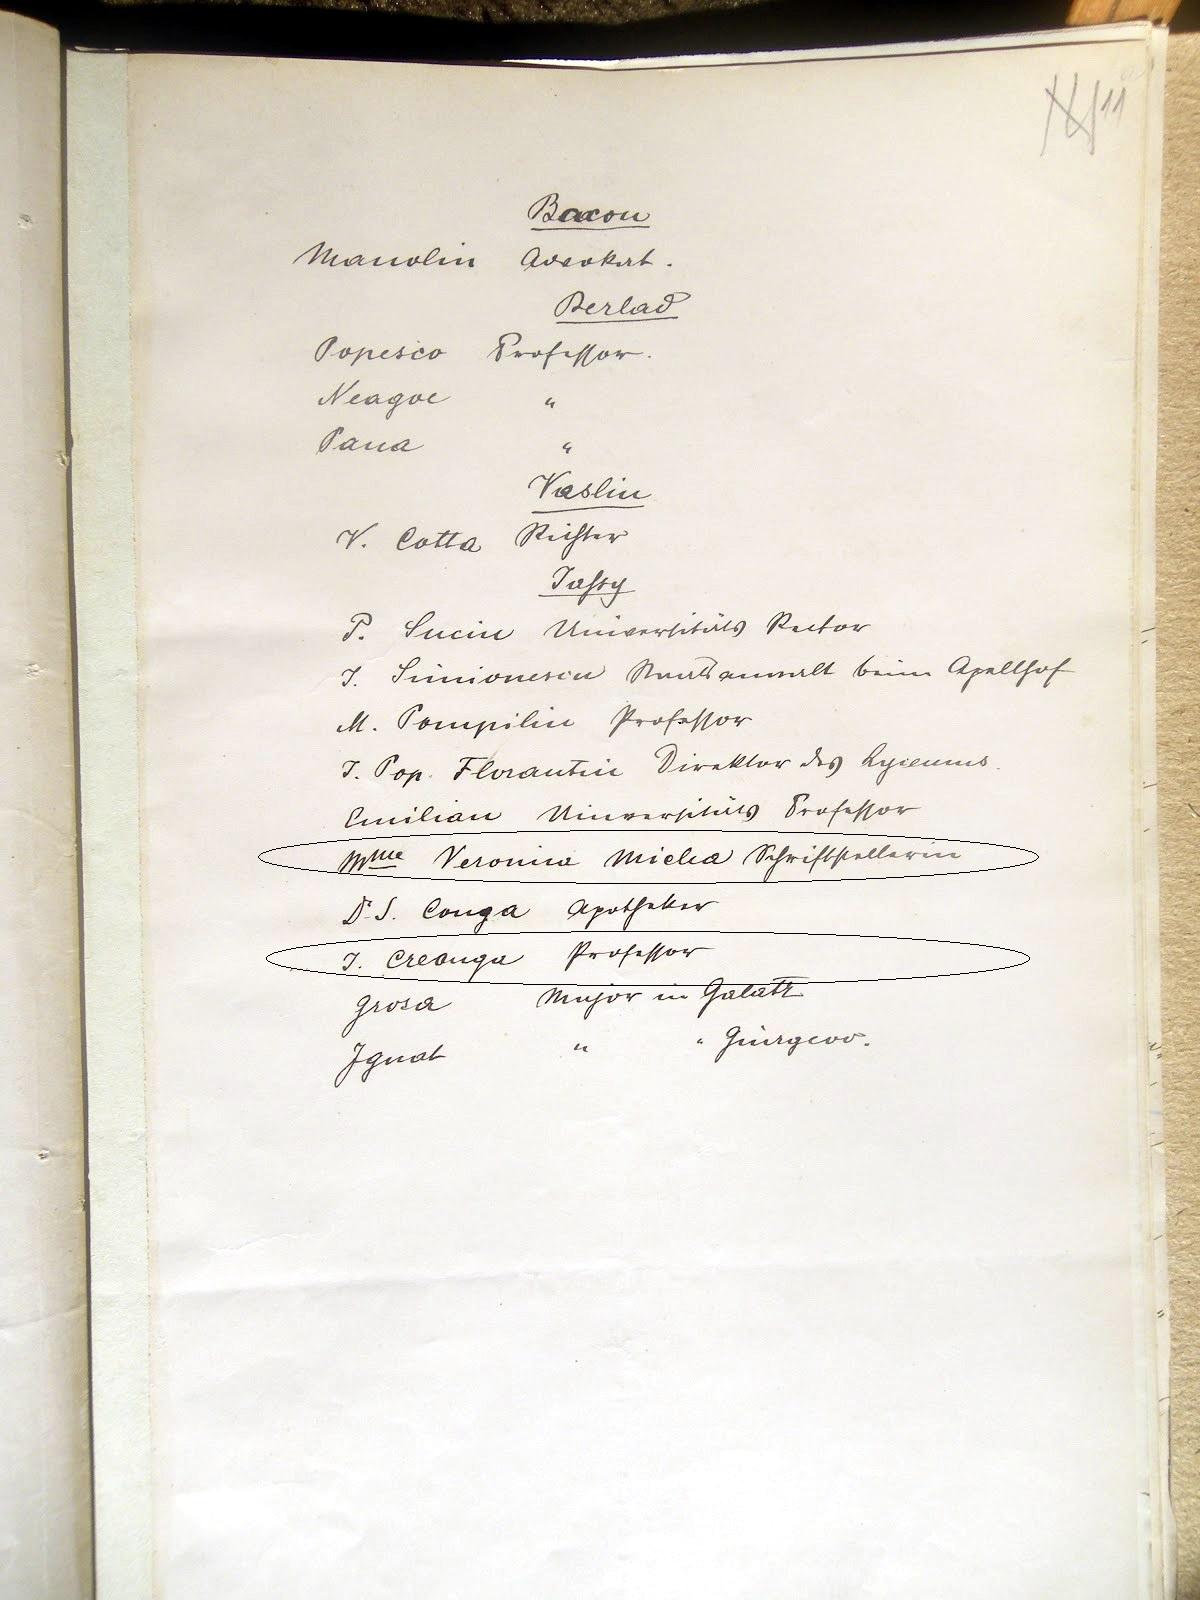 11
Bacou
Manoliu Advokat.
Berlad
Popesco Professor.
Neagoe "
Pana "
Vasliu
V. Cotta Richter
Jassy
P. Suciu Universitäts Rector
I. Simionescu Staatsanwalt beim Apellhof
M. Pompiliu Professor
I. Pop. Florantin Direktor des Lyceums.
Emilian Universitäts Professor
Mme Veronica Micle Schriftstellerin
Dr S. Conya Apotheker
I. Creanga Professor
Grosa Major in Galatz
Ignat " " Giurgevo.